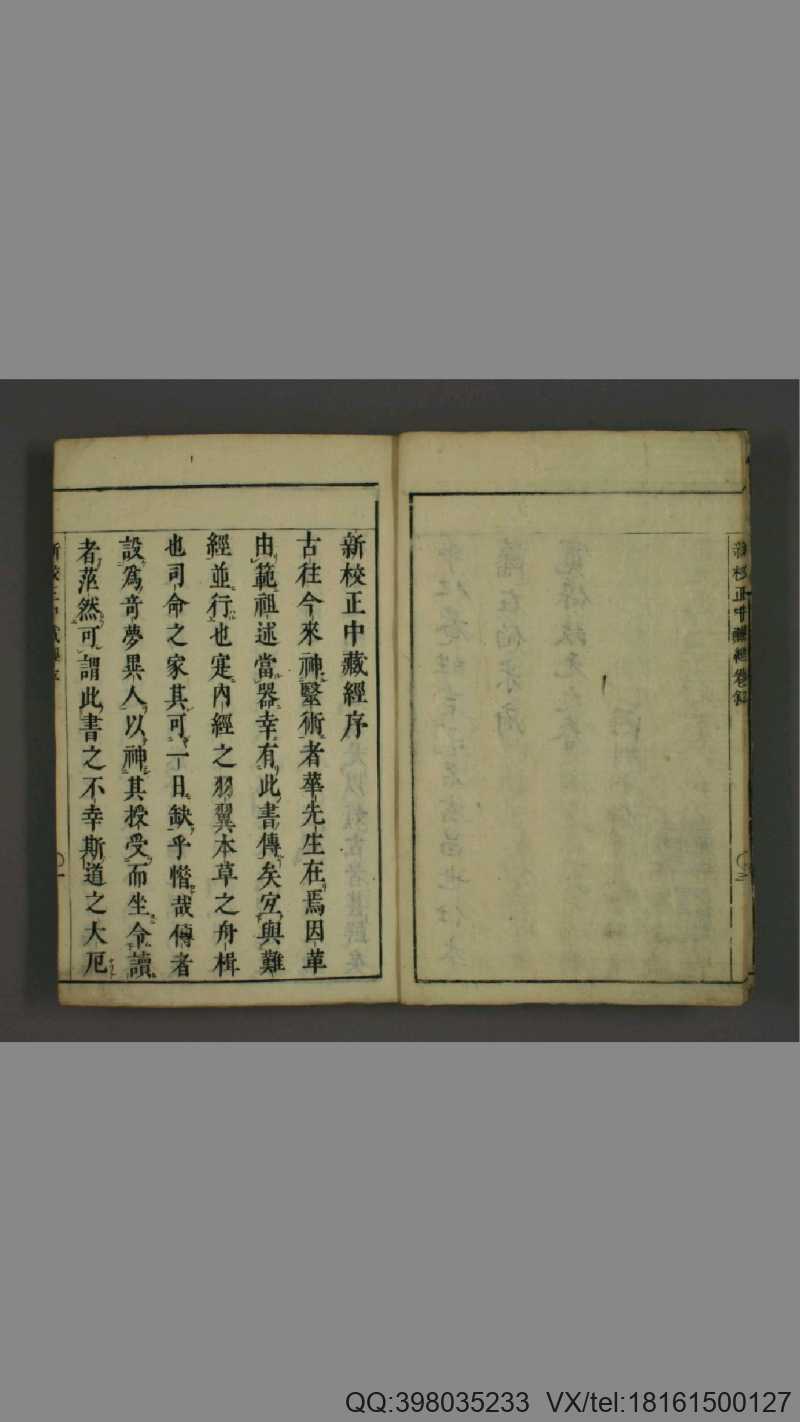 新校正中藏經卷翁
新校正中藏經序
古往今來神毉術者華先生在焉因革
由範祖述當器幸有此書傳矣宐與難
經並行也寔內經之羽翼本草之舟楫
也司命之家其可一日缺乎惜哉傳者
設爲竒夢異人以神其授受而坐令讀
者茫然可謂此書之不幸斯道之大厄
新校正中藏經序
一
QQ:398035233 VX/tel:18161500127